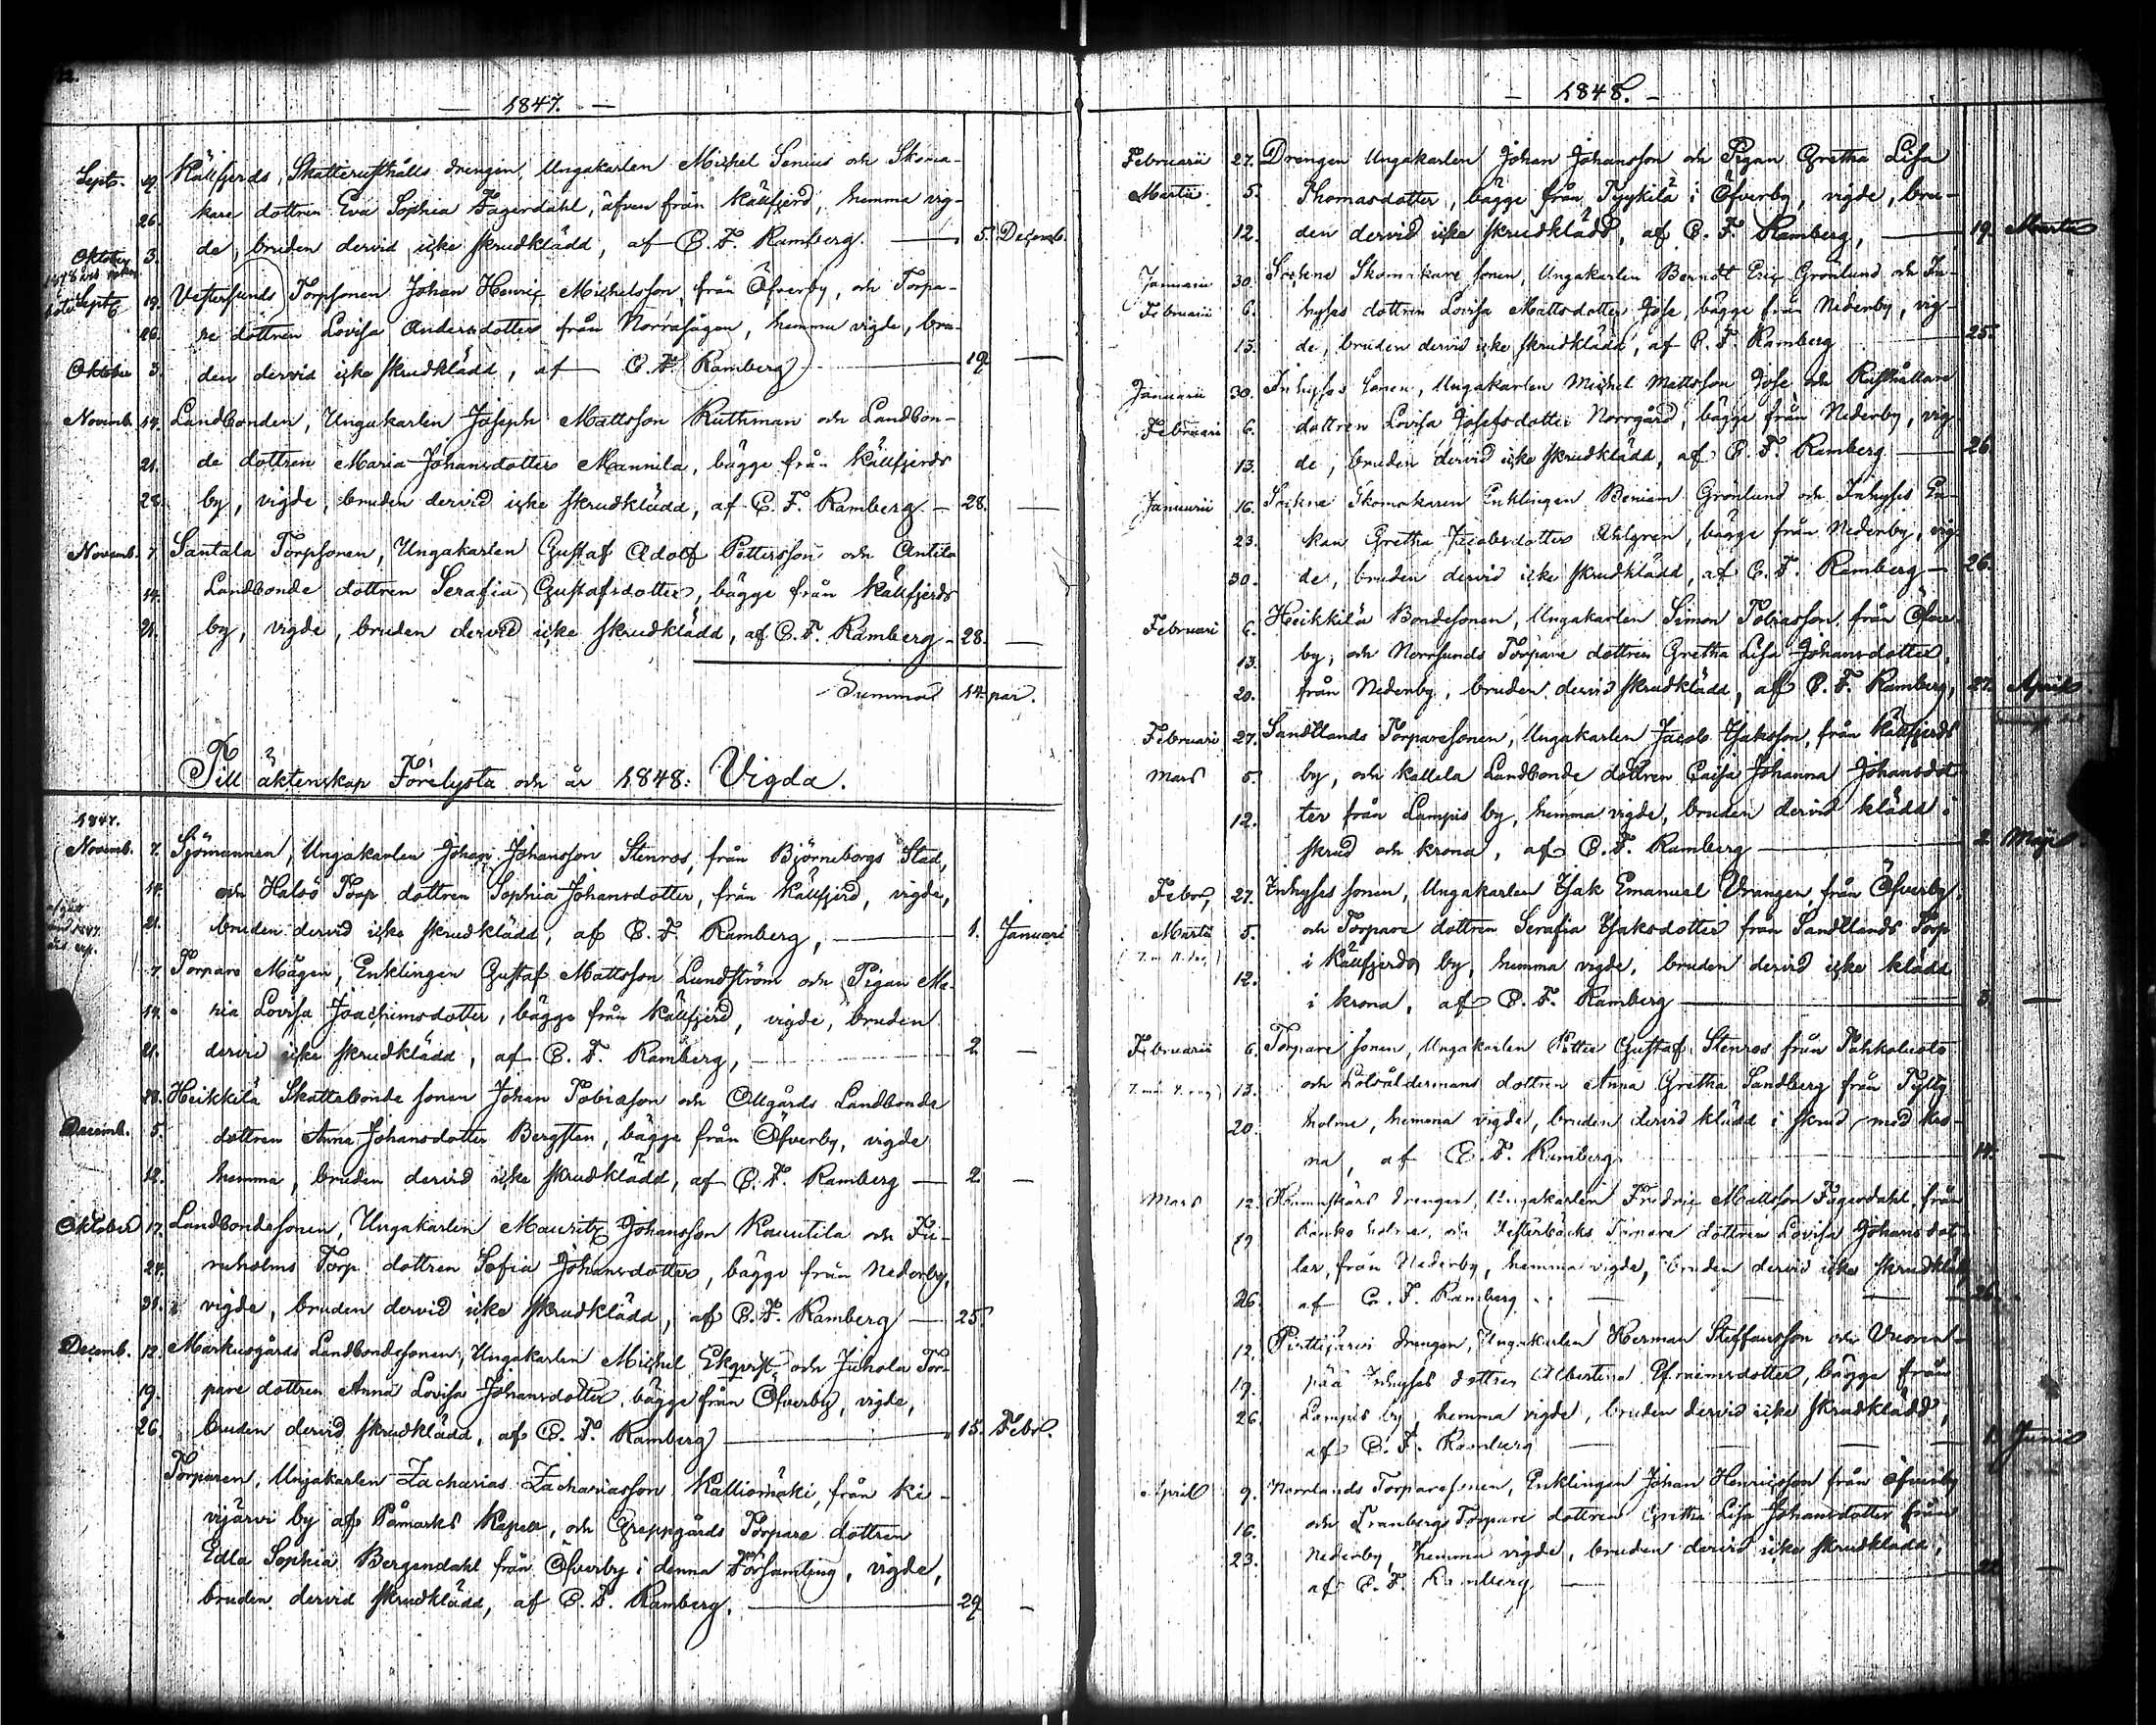 1847.
Sept. 19. Källfjerds, Skatterusthålls drengen, Ungakarlen Michel Senius och Skoma-
26. kare dottren Eva Sophia Fagerdahl, äfven från Källfjerd, hemma vig-
Oktober 3. de, bruden dervid icke skrudklädd, af C. F. Ramberg. 5. Decemb.
Sept. 19. Vestersunds Torpsonen Johan Henric Michelsson, från Öfverby, och Torpa-
26. re dottren Lovisa Andersdotter från Norrafågen, hemma vigde, bru-
Oktober 3. den dervid icke skrudklädd, af C. F. Ramberg 19. —
Novemb. 14. Landbonden, Ungakarlen Joseph Mattsson Ruthman och Landbon-
21. de dottren Maria Johansdotter Mannila, bägge från Källfjerds
28. by, vigde, bruden dervid icke skrudklädd, af C. F. Ramberg. — 28. —
Novemb. 7. Santala Torpsonen, Ungakarlen Gustaf Adolf Pettersson och Antila
14. Landbonde dottren Serafia Gustafsdotter, bägge från Källfjerds
21. by, vigde, bruden dervid icke skrudklädd, af C. F. Ramberg - 28. —
Summa 14. par.
Till äktenskap Förelysta och år 1848: Vigda.
1847.
Novemb. 7. Sjömannen, Ungakarlen Johan Johansson Stenros, från Björneborgs Stad,
14. och Halsö Torp dottren Sophia Johansdotter, från Källfjerd, vigde,
21. bruden dervid icke skrudklädd, af C. F. Ramberg, 1. Januari
7. Torpare Mågen, Enklingen Gustaf Mattsson Lundström och Pigan Ma-
14. ria Lovisa Joachimsdotter, bägge från Källfjerd, vigde, bruden
21. dervid icke skrudklädd, af C. F. Ramberg, 2. —
28. Heikkilä Skattebonde sonen Johan Tobiasson och Ollgårds Landbonde
Decemb. 5. dottren Anna Johansdotter Bergsten, bägge från Öfverby, vigde
12. hemma, bruden dervid icke skrudklädd, af C. F. Ramberg — 2. —
Oktober 17. Landbondesonen, Ungakarlen Mauritz Johansson Kauntila och Fu-
24. ruholms Torp dottren Sofia Johansdotter, bägge från Nederby,
31. vigde, bruden dervid icke skrudklädd, af C. F. Ramberg — 25.
Decemb. 12. Markusgårds Landbondesonen, Ungakarlen Michel Ekqvist och Juhola Tor-
19. pare dottren Anna Lovisa Johansdotter, bägge från Öfverby, vigde,
26. bruden dervid skrudklädd, af C. F. Ramberg 15. Febr.
Torparen, Ungakarlen Zacharias Zachariasson Kalliomäki, från Ki-
vijärvi by af Påmarks Kapell, och Greppgårds Torpare dottren
Edla Sophia Bergendahl från Öfverby i denna Församling, vigde,
bruden dervid skrudklädd, af C. F. Ramberg. 29. —
1848.
Februarii 27. Drengen Ungakarlen Johan Johansson och Pigan Gretha Lisa
Martii 5. Thomasdotter, bägge från Tyykilä i Öfverby, vigde, bru-
12. den dervid icke skrudklädd, af C. F. Ramberg, 19. Martii
Januarii 30. Sockne Skomakare sonen, Ungakarlen Berndt Eric Grönlund och In-
Februarii 6. hyses dottren Lovisa Mattsdotter Jose, bägge från Nederby, vig-
13. de, bruden dervid icke skrudklädd, af C. F. Ramberg 25.
Januarii 30. Inhyses sonen, Ungakarlen Michel Mattsson Jose och Rusthållare
Februari 6. dottren Lovisa Josefsdotter Norrgård, bägge från Nederby, vig-
13. de, bruden dervid icke skrudklädd, af C. F. Ramberg 26.
Januarii 16. Sockne Skomakaren Enklingen Beniam Grönlund och Inhyses En-
23. kan Gretha Jacobsdotter Ahlgren, bägge från Nederby, vig-
30. de, bruden dervid icke skrudklädd, af C. F. Ramberg — 26.
Februari 6. Heikkilä Bondesonen, Ungakarlen Simon Tobiasson från Öfver-
13. by, och Norrsunds Torpare dottren Gretha Lisa Johansdotter,
20. från Nederby, bruden dervid skrudklädd, af C. F. Ramberg, 27. April
Februari 27. Sandtlands Torparesonen, Ungakarlen Jacob Isaksson, från Källfjerds
Mars 5. by, och Kallela Landbonde dottren Caisa Johanna Johansdot-
12. ter från Lampis by, hemma vigde, bruden dervid klädd i
skrud och krona, af C. F. Ramberg 2. Maji
Febr, 27. Inhyses sonen, Ungakarlen Isak Emanuel Vrangen, från Öfverby,
Martii 5. och Torpare dottren Serafia Isaksdotter från Sandtlands Torp
12. i Källfjerds by, hemma vigde, bruden dervid icke klädd
i krona, af C. F. Ramberg 3. —
Februarii 6. Torpare sonen, Ungakarlen Petter Gustaf Stenros från Pahkaluoto
13. och Lotsåldermans dottren Anna Gretha Sandberg från Pytty
20. holme, hemma vigde, bruden dervid klädd i skrud med kro-
na, af C. F. Ramberg 14. —
Mars 12. drengen, Ungakarlen Fredric Mattsson Fagerdahl, från
19. holme, och Vesterbacks Torpare dottren Lovisa Johansdot-
ter, från Nederby, hemma vigde, bruden dervid icke skrudklädd,
26. af C. F. Ramberg 26.
12. Pirttijärvi drengen, Ungakarlen Herman Steffansson och Vuoren-
19. pää Inhyses dottren Albertina Efraimsdotter, bägge från
26. Lampis by, hemma vigde, bruden dervid icke skrudklädd,
af C. F. Ramberg 1. Junii
April 9. Norrlands Torparesonen, Enklingen Johan Henricsson från Öfverby
16. och Tranbergs Torpare dottren Gretha Lisa Johansdotter från
23. Nederby, hemma vigde, bruden dervid icke skrudklädd,
af C. F. Ramberg 22. —